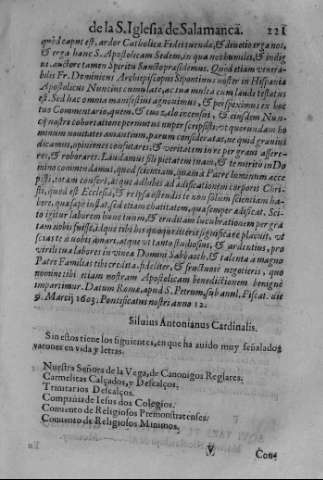 de la S. Iglesia de Salamanca. 221
quòd caput est, ardor Catholicæ Fidei tuendæ, & deuotio erga nos,
& erga hanc S. Apostolicam Sedem, in qua nos humiles, & indig
ni, auctore tamen Spiritu Sancto præsidemus. Quòd etiam venera-
bilis Fr. Dominicus Archiepiscopus Sipontinus noster in Hispania
Apostolicus Nuncius cumulatè, ac tua multa cum laude testatus
est. Sed hæc omnia manifestius agnouimus, & perspeximus ex hoc
tuo Commentario, quem & tuo zelo excensti, & eiusdem Nun-
cij nostro cohortatione permotus nuper scripsisti: vt quorundam ho
minum nouitates amantium, parum consideratas, ne quid grauius
dicamus, opiniones confutares, & veritatem in re per graui assere-
res, & roborares. Laudamus fili pietatem tuam, & te meritò in Do
mino commendamus, quòd scientiam, quam à Patre luminum acce
pisti, totam conferi, atque adhibes ad ædificationem corporis Chri-
sti, quod est Ecclesia, & reipsa ostendis te non solum scientiam ha-
bere, quæ sæpe inflat, sed etiam charitatem, quæ semper ædificat. Sci-
to igitur laborem hunc tuum, & eruditam lucubrationem per gra
tam nobis fuisse. Idque tibi bis quoque litteris significare placuit, vt
scias te à nobis amari, atque vt tanto studiosius, & ardentius, pro
virili tua labores in vinea Domini Sabaoth, & talenta à magno
Patre Familias tibi credita, fideliter, & fructuosè negotieris, quo
nomine tibi etiam nostram Apostolicam benedictionem benignè
impartimur. Datum Romæ, apud S. Petrum, sub annl. Piscat. die
9. Martij 1603. Pontificatus nostri anno 12.
Siluius Antonianus Cardinalis.
Sin estos tiene los siguientes, en que ha auido muy señalados
varones en vida y letras.
Nuestra Señora de la Vega, de Canonigos Reglares.
Carmelitas Calçados, y Descalços.
Trinitarios Descalços.
Compañia de Iesus dos Colegios.
Conuento de Religiosos Premonstratenses.
Conuento de Religiosos Minimos.
V Con-